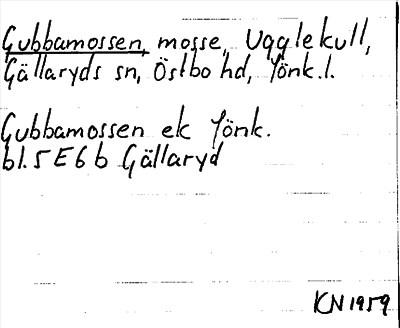 Gubbamossen, mosse, Ugglekull,
Gällaryds sn, Östbo hd, Jönk.l.
Gubbamossen ek Jönk.
bl.5E6b Gällaryd
KN1959